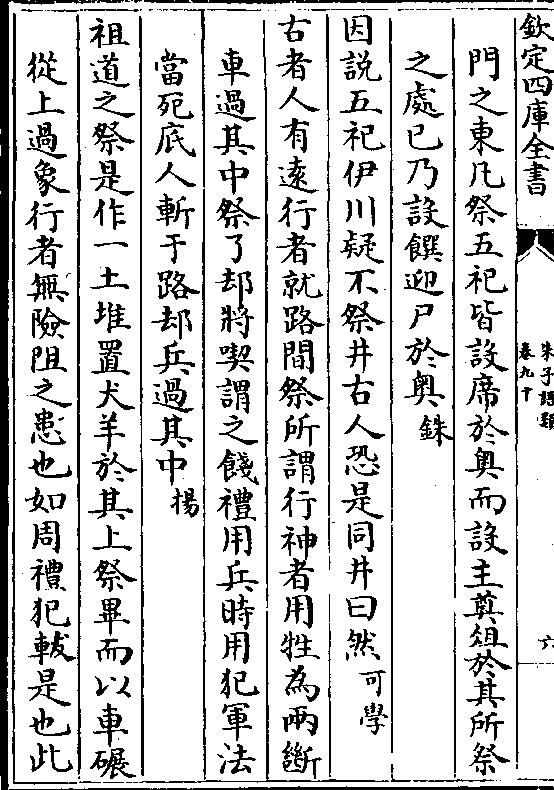 欽定四庫全書
朱子語類
卷九十
六
門之東凡祭五祀皆設席於奧而設主奠俎於其所祭
之處已乃設饌迎尸於奧銖
因説五祀伊川疑不祭井古人恐是同井曰然可學
古者人有遠行者就路間祭所謂行神者用牲為兩斷
車過其中祭了却將喫謂之餞禮用兵時用犯軍法
當死底人斬于路却兵過其中揚
祖道之祭是作一土堆置犬羊於其上祭畢而以車碾
從上過象行者無險阻之患也如周禮犯軷是也此